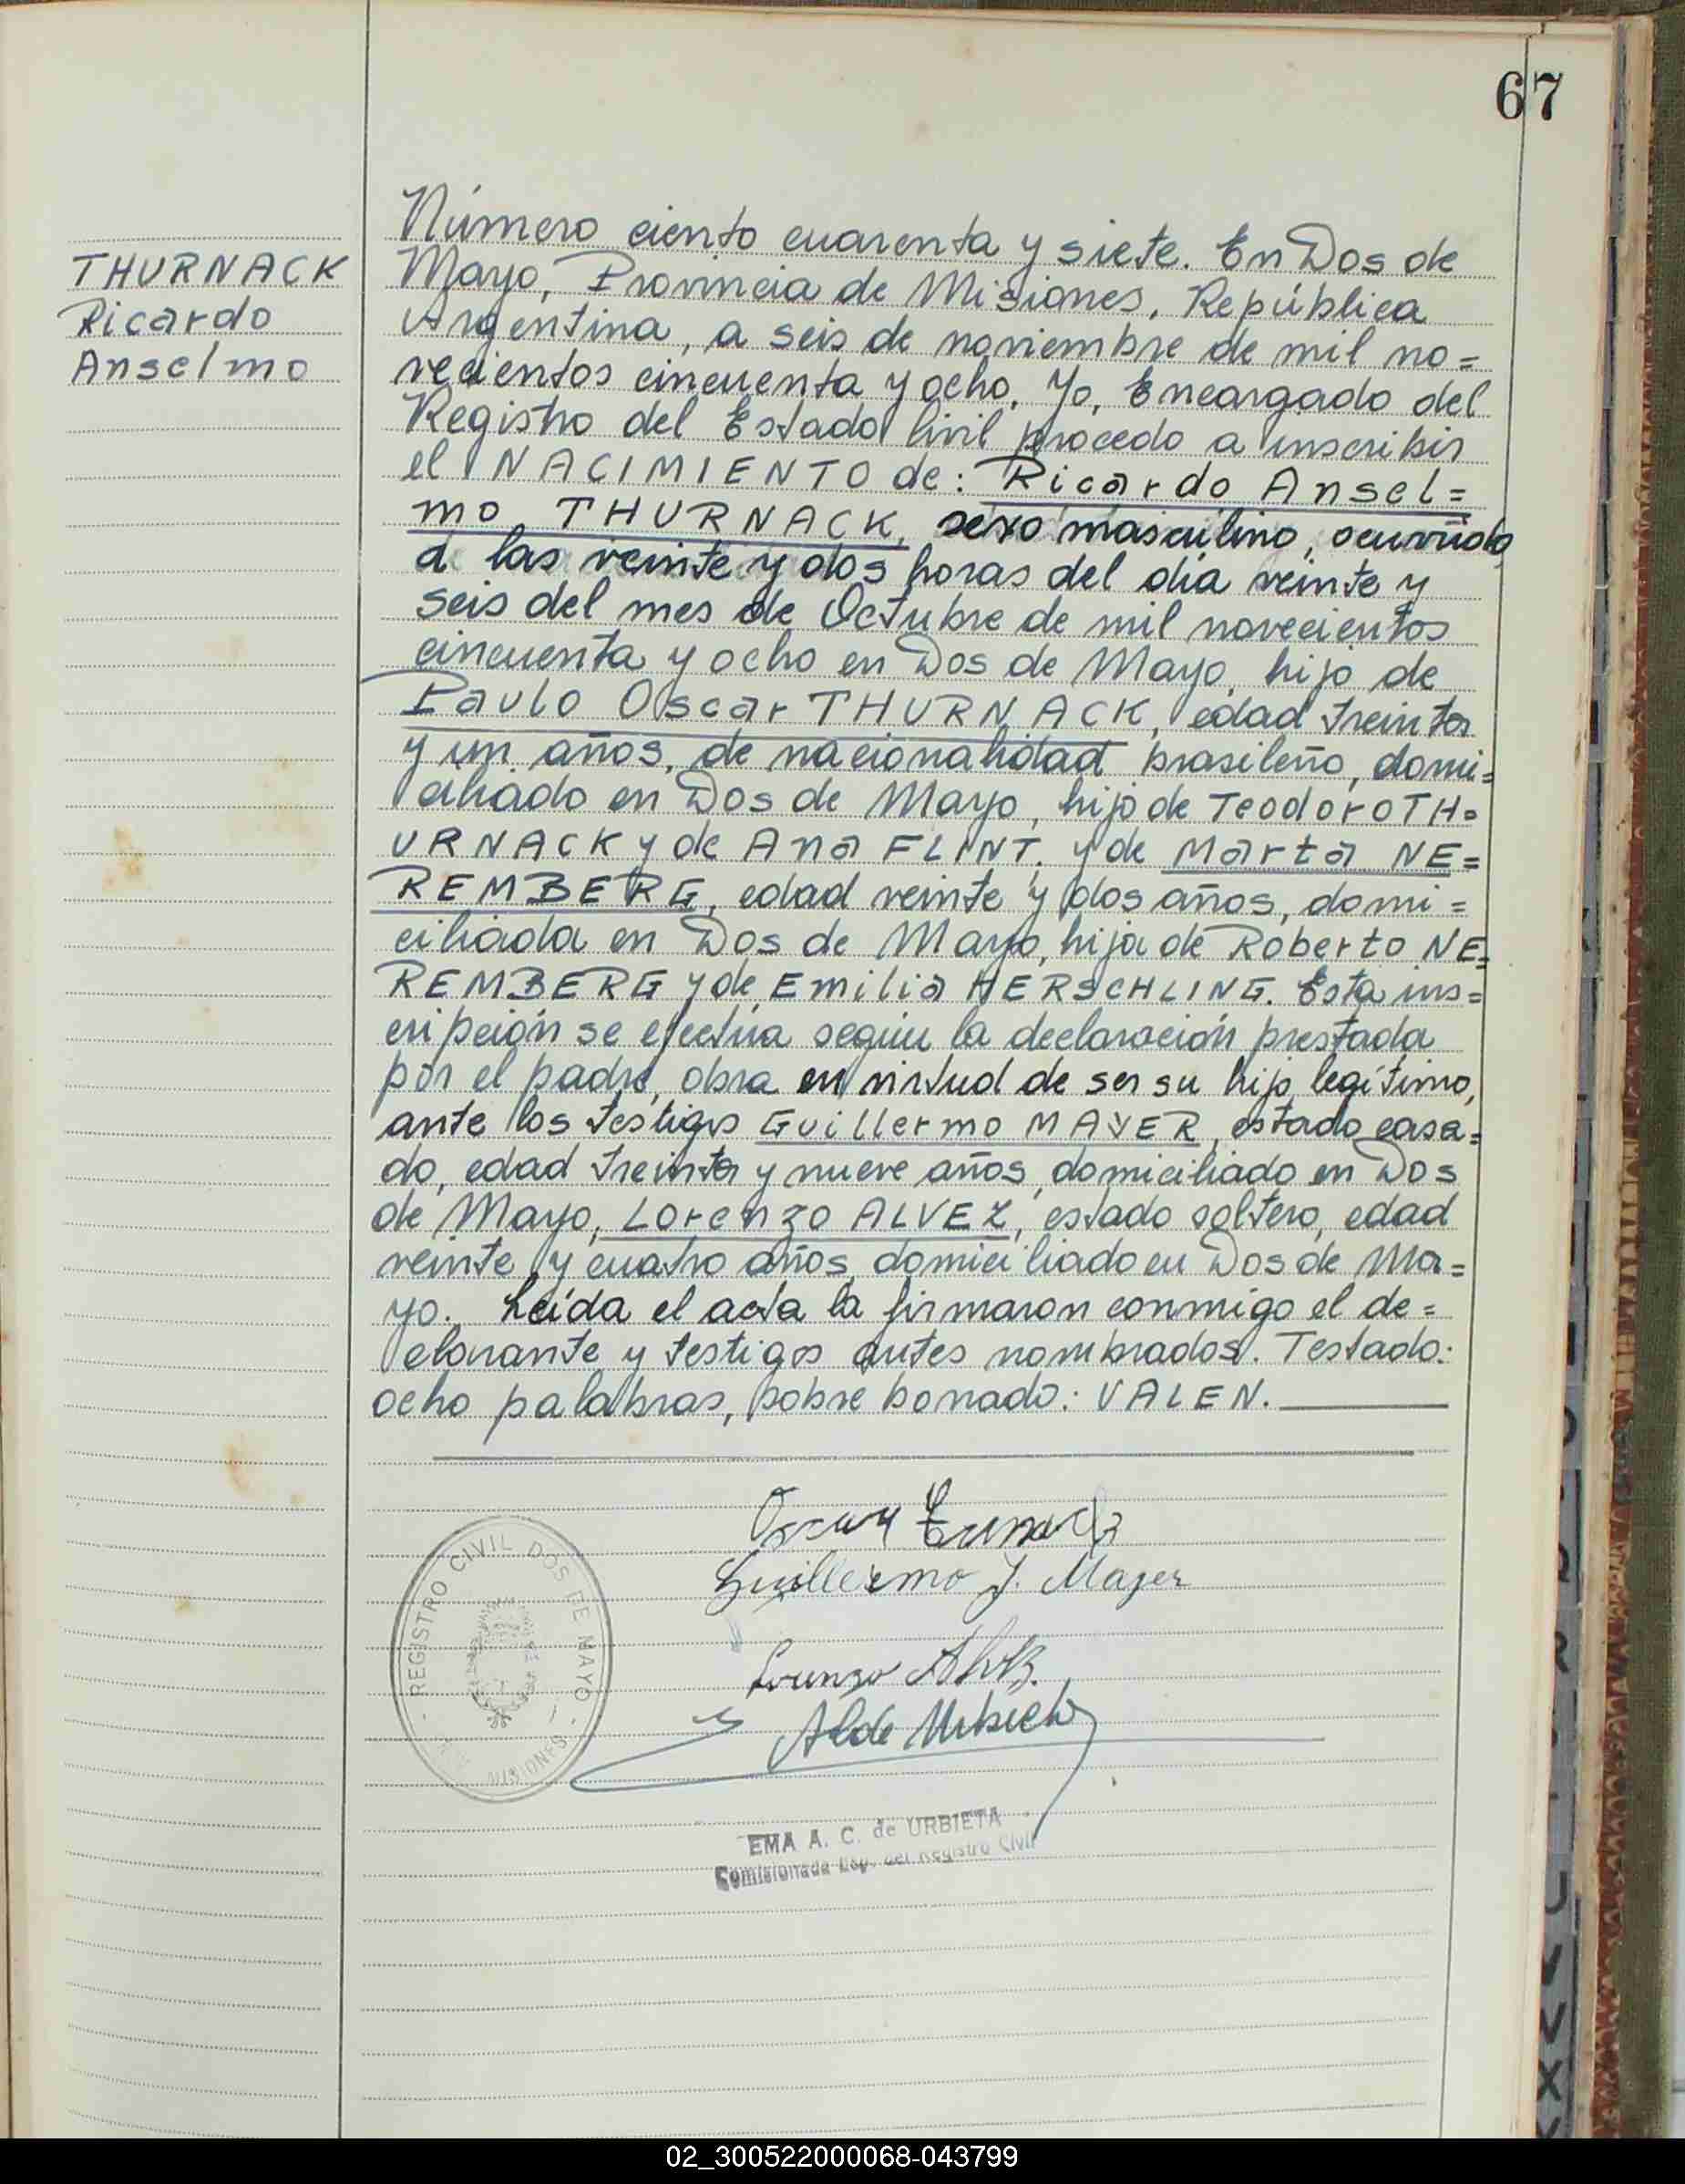 67
THURNACK
Ricardo
Anselmo
Número ciento cuarenta y siete. En Dos de
Mayo, Provincia de Misiones, República
Argentina, a seis de noviembre de mil no=
vecientos cincuenta y ocho. Yo, Encargado del
Registro del Estado Civil procedo a inscribir
el NACIMIENTO de: Ricardo Ansel=
mo THURNACK, sexo masculino, ocurrido
a las veinte y dos horas del día veinte y
seis del mes de Octubre de mil novecientos
cincuenta y ocho en Dos de Mayo, hijo de
Paulo Oscar THURNACK, edad treinta
y un años, de nacionalidad brasileño, domi=
ciliado en Dos de Mayo, hijo de Teodoro TH=
URNACK y de Ana FLINT. y de Marta NE=
REMBERG, edad veinte y dos años, domi=
ciliada en Dos de Mayo, hija de Roberto NE=
REMBERG y de Emilia HERSCHLING. Esta ins=
cripción se efectúa según la declaración prestada
por el padre, obra en virtud de ser su hijo legítimo,
ante los testigos Guillermo MAYER, estado casa=
do, edad treinta y nueve años, domiciliado en Dos
de Mayo, Lorenzo ALVEZ, estado soltero, edad
veinte y cuatro años, domiciliado en Dos de Ma=
yo. Leída el acta la firmaron conmigo el de=
clarante y testigos antes nombrados. Testado:
ocho palabras, sobre borrado: VALEN.
Oscar
Guillermo J. Mayer
Lorenzo Alvez
A de Urbieta
REGISTRO CIVIL DOS DE MAYO
MISIONES
EMA A. C. de URBIETA
Comisionada Esp. del Registro Civil
02_300522000068-043799